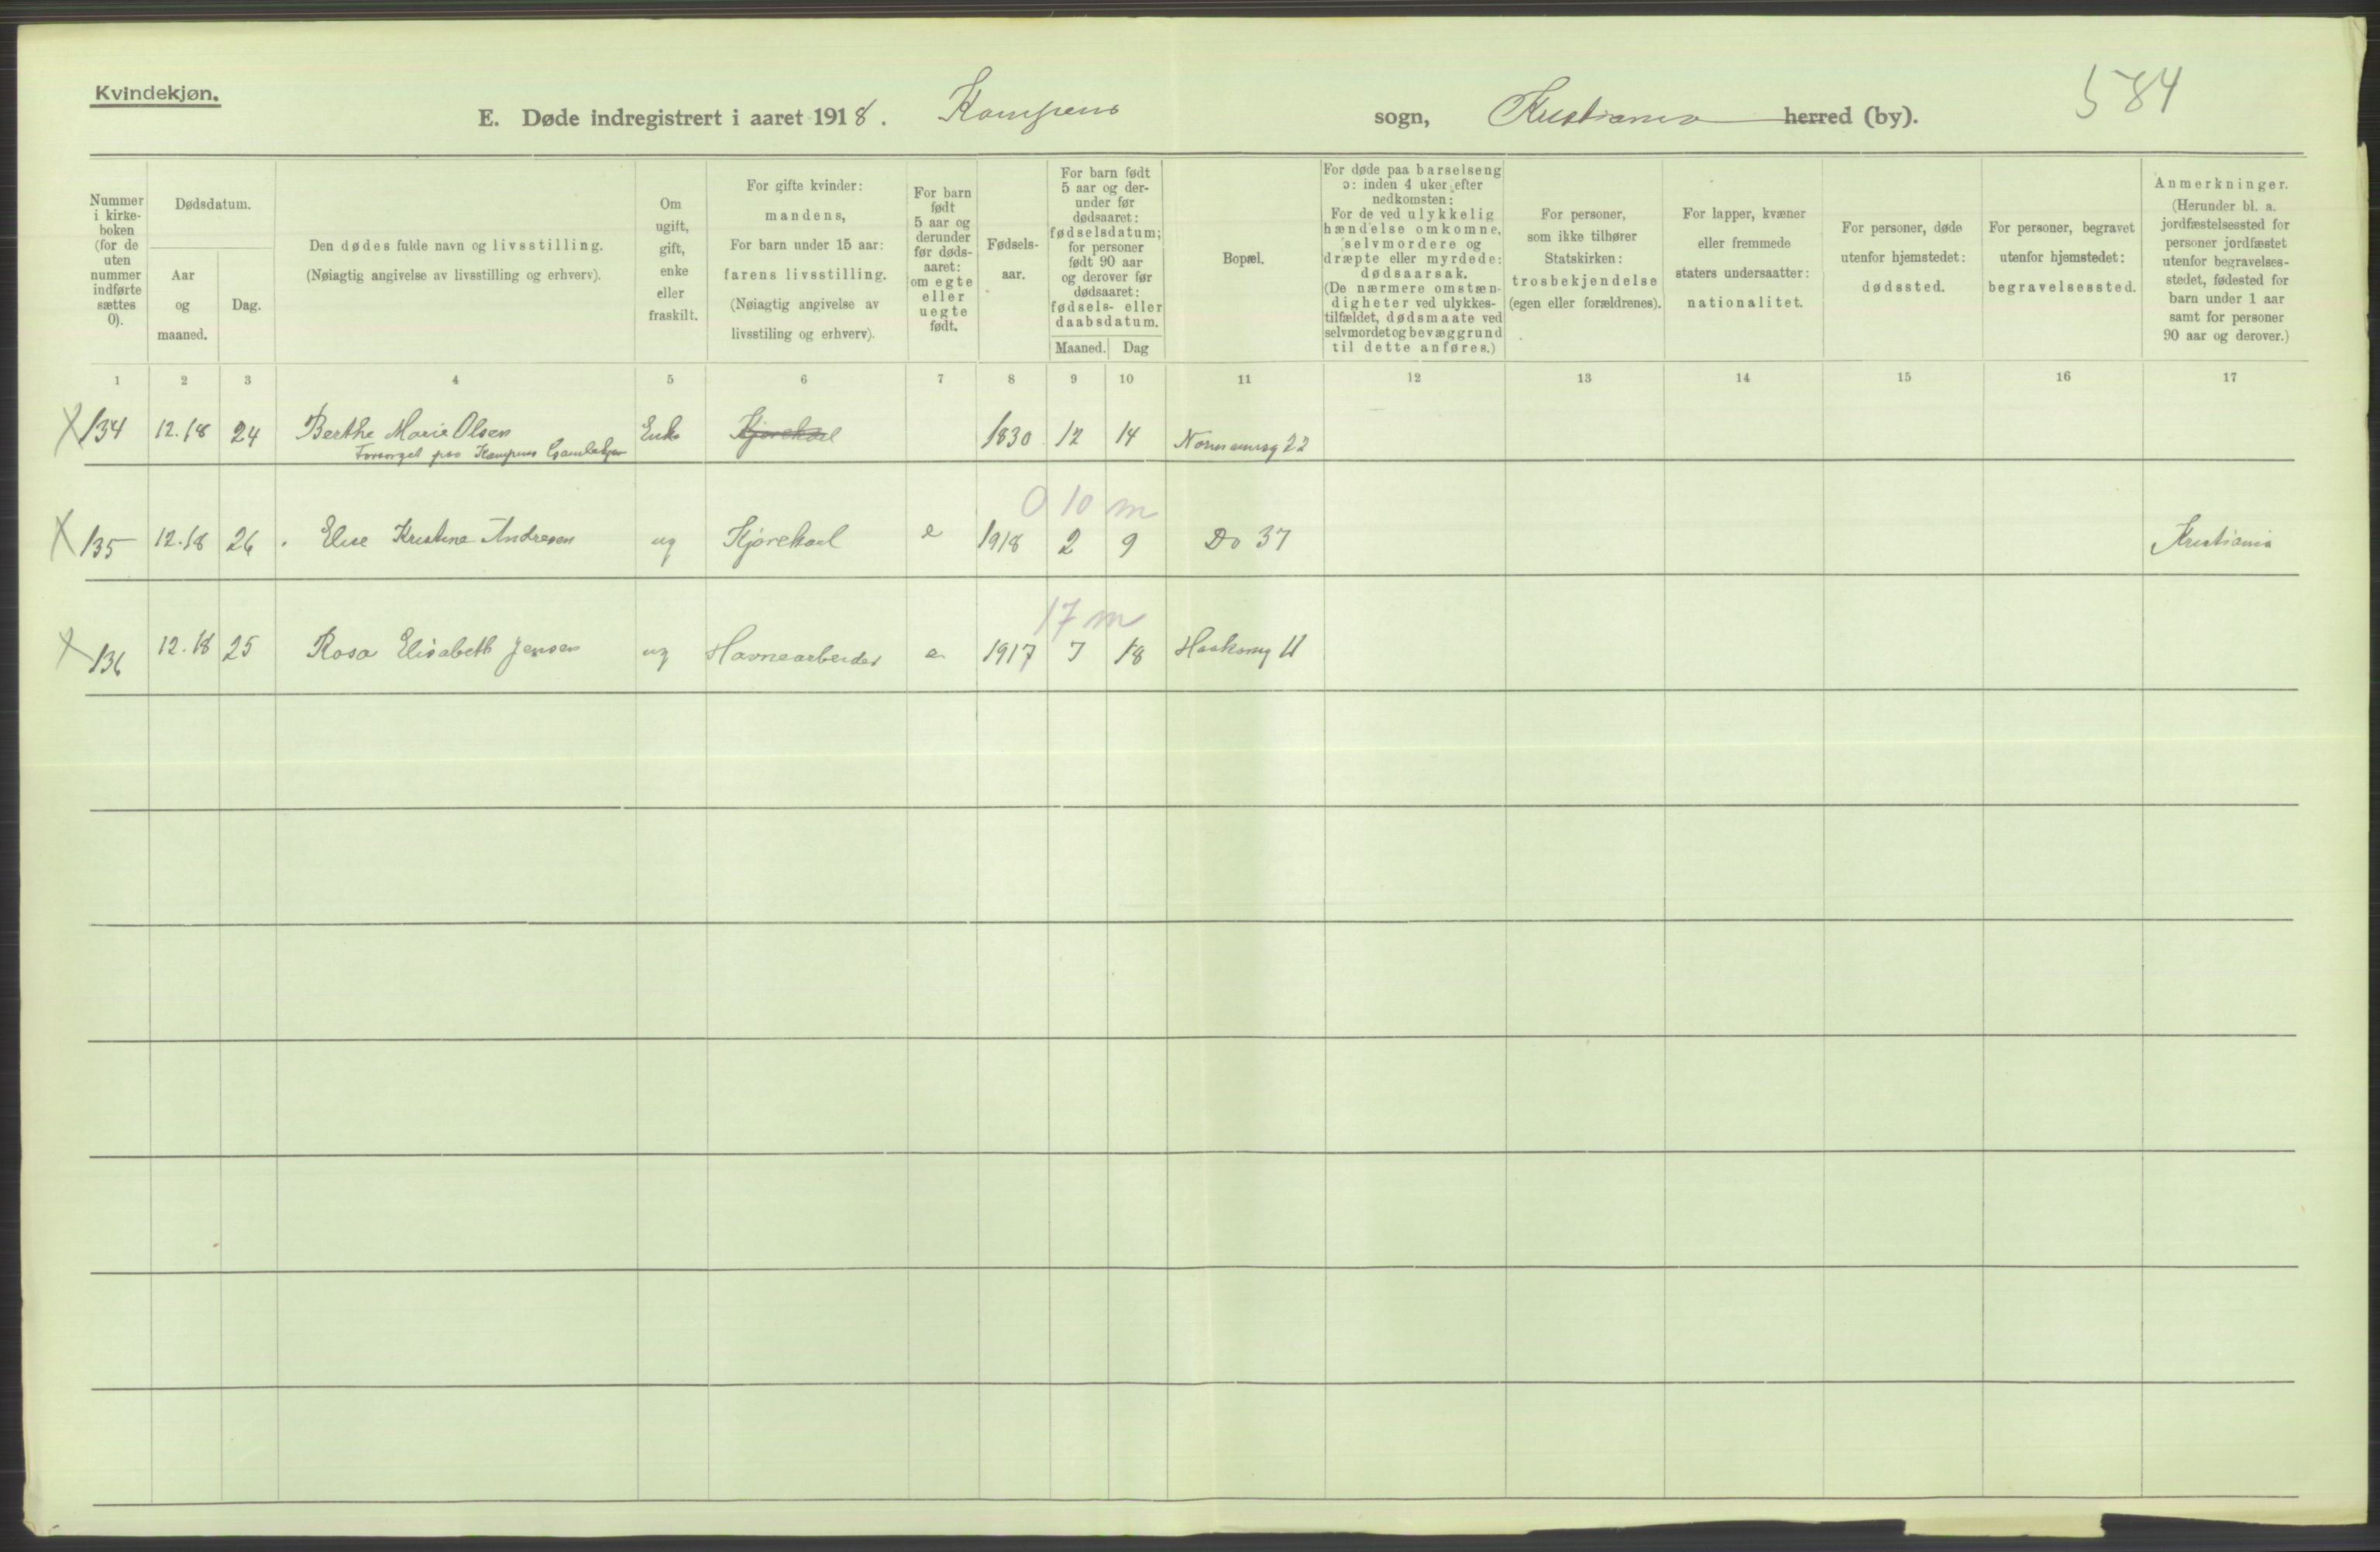 Kvindekjøn.
E. Døde indregistrert i aaret 1918. Kampens sogn, Kristiania herred (by).
584
Nummer i kirke-boken (for de uten nummer indførte sættes 0).
Dødsdatum.
Aar og maaned.
Dag.
Den dødes fulde navn og livsstilling.
(Nøiagtig angivelse av livsstilling og erhverv).
Om ugift, gift, enke eller fraskilt.
For gifte kvinder:
mandens,
For barn under 15 aar:
farens livsstilling.
(Nøiagtig angivelse av
livsstiling og erhverv).
For barn født 5 aar og derunder før døds-aaret: om egte eller uegte født.
Fødsels-aar.
For barn født 5 aar og der-under før dødsaaret: fødselsdatum; for personer født 90 aar og derover før dødsaaret: fødsels- eller daabsdatum.
Maaned.
Dag
Bopæl.
For døde paa barselseng
ɔ: inden 4 uker efter
nedkomsten:
For de ved ulykkelig
hændelse omkomne,
selvmordere og
dræpte eller myrdede:
dødsaarsak.
(De nærmere omstæn-
digheter ved ulykkes-
tilfældet, dødsmaate ved
selvmordet og bevæggrund
til dette anføres.)
For personer,
som ikke tilhører
Statskirken:
trosbekjendelse
(egen eller forældrenes).
For lapper, kvæner
eller fremmede
staters undersaatter:
nationalitet.
For personer, døde
utenfor hjemstedet:
dødssted.
For personer, begravet
utenfor hjemstedet:
begravelsessted.
Anmerkninger.
(Herunder bl. a.
jordfæstelsessted for
personer jordfæstet
utenfor begravelses-
stedet, fødested for
barn under 1 aar
samt for personer
90 aar og derover.)
1 2 3 4 5 6 7 8 9 10 11 12 13 14 15 16 17
X 134 12.18 24 Berthe Marie Olsen Enke Kjørekarl 1830 12 14 Normannsg 22
Forsørget paa Kampens Gamlehjem
0 10 m
X 135 12.18 26 Else Kristine Andresen ug Kjørekarl e 1918 2 9 Do 37 Kristiania
17 m
X 136 12.18 25 Rosa Elisabeth Jensen ug Havnearbeider e 1917 7 18 Haakonsg 11